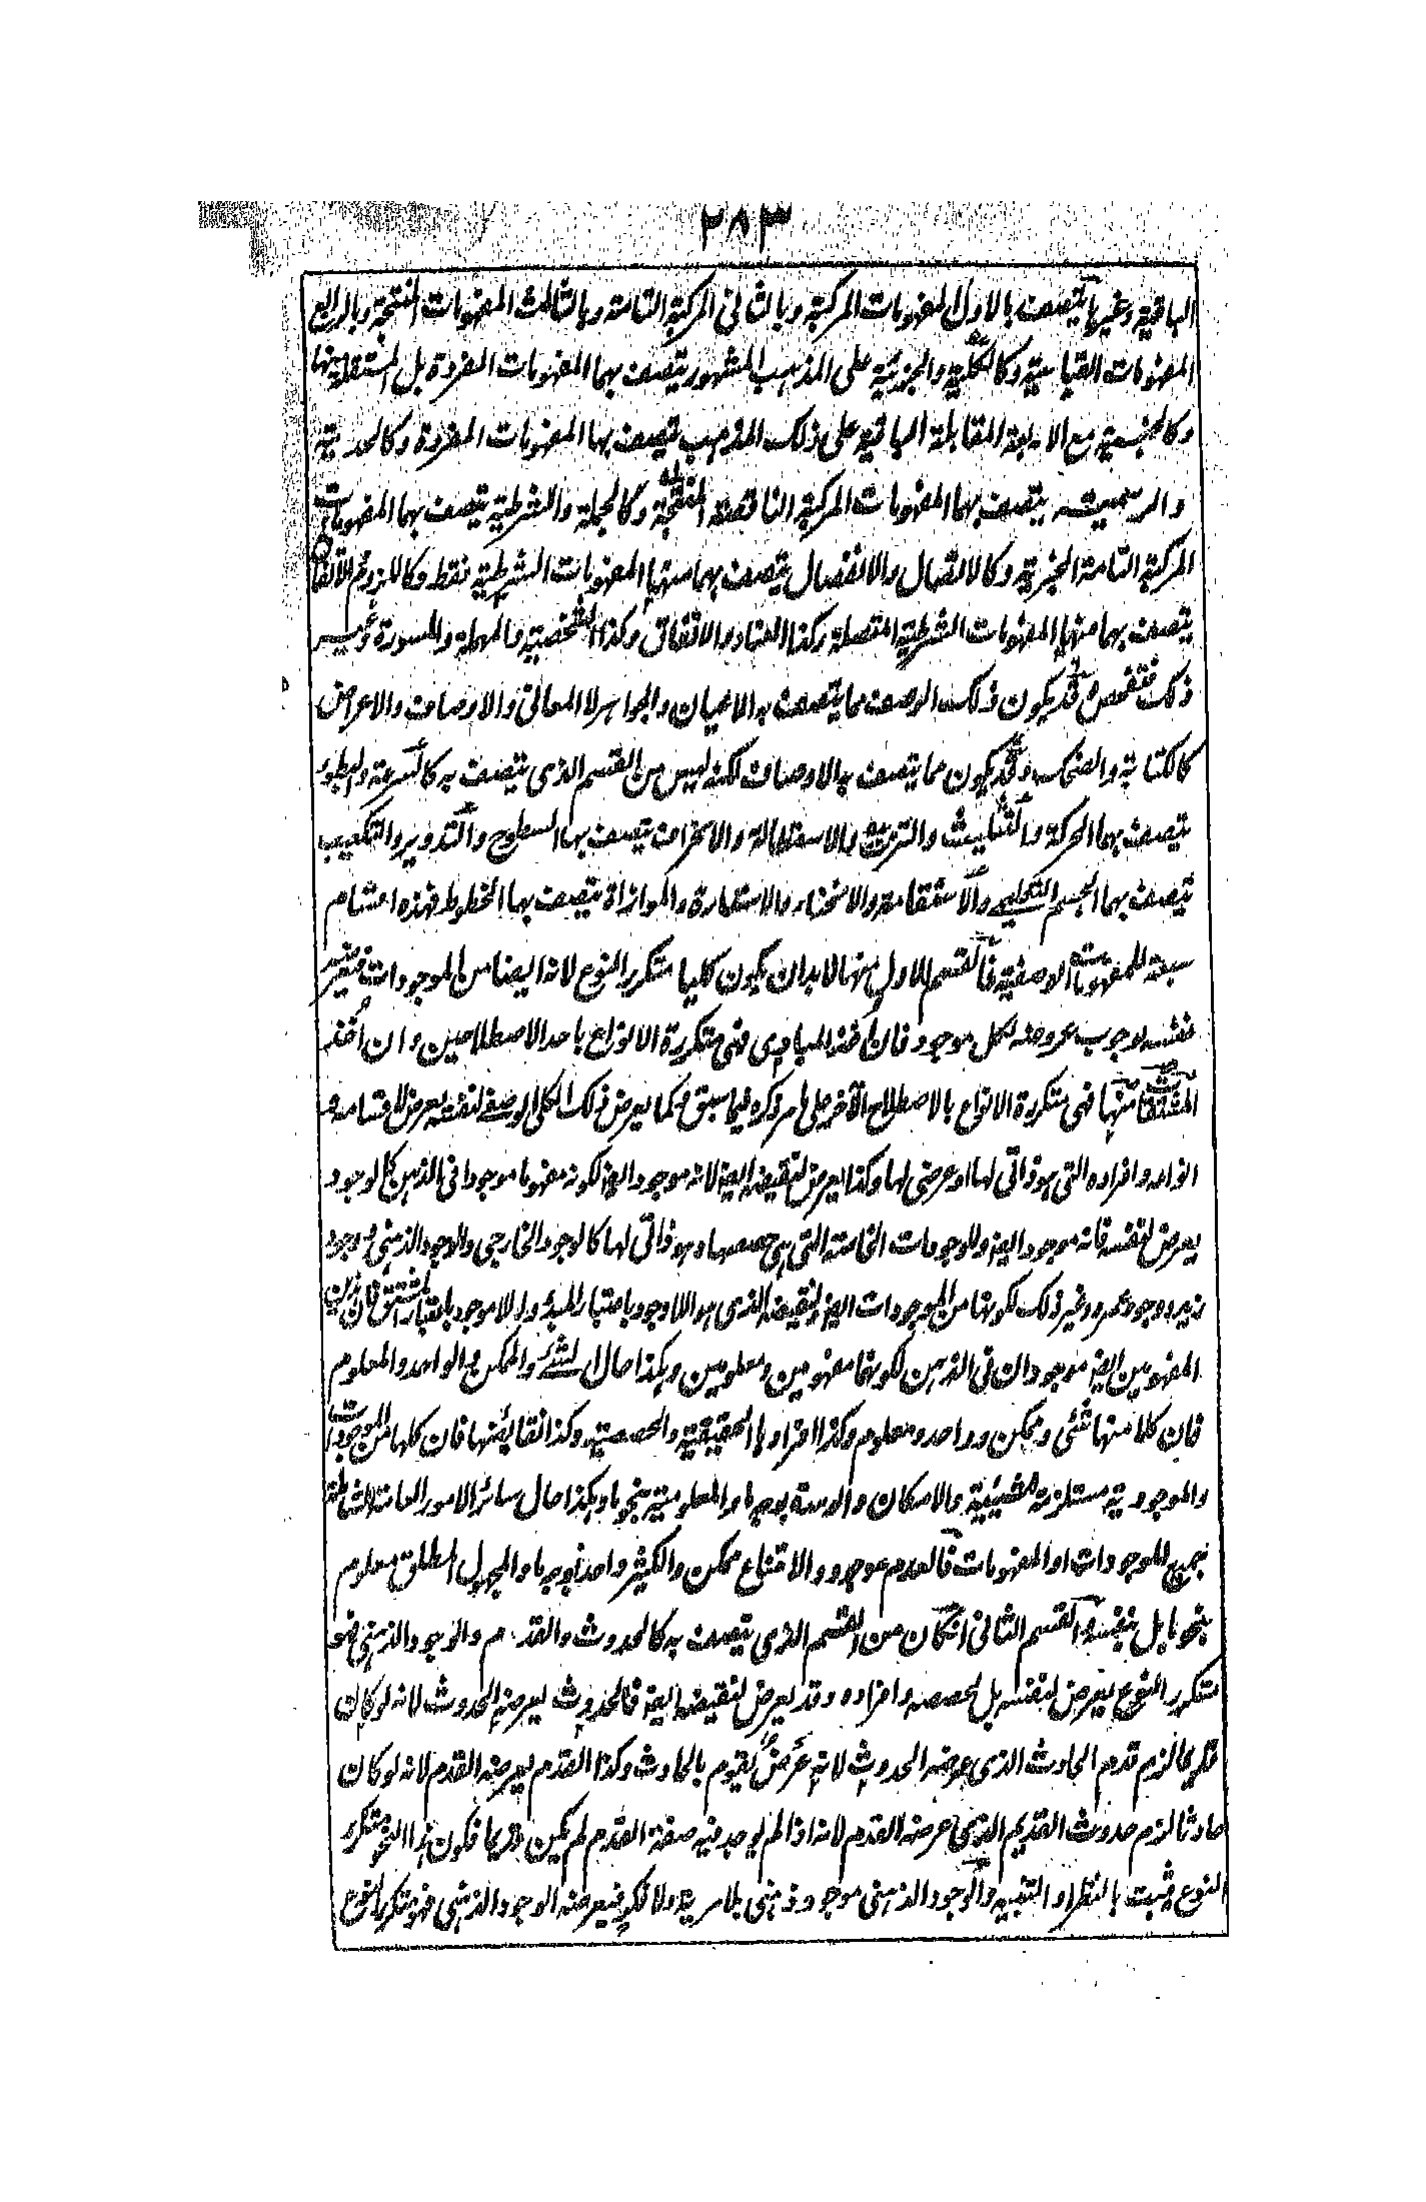 ٢٨٣
الباقية وغيرها يتصف بالاول المفهومات المركبة وبالثانى المركبة التامة وبالثالث المفهومات المنتجة وبالرابع
المفهومات القياسية وكالكلية والجزئية على المذهب المشهور يتصف بهما المفهومات المفردة بل المستقلة منها
وكالجنسية مع الاربعة المقابلة الباقية على ذلك المذهب يتصف بها المفهومات المفردة وكالحدية
والرسمية يتصف بهما المفهومات المركبة الناقصة وكالحملية والشرطية يتصف بهما المفهومات
المركبة التامة الخبرية وكالاتصال والانفصال يتصف بهما منها المفهومات الشرطية فقط وكاللزوم والاتفاق
يتصف بهما منها المفهومات الشرطية المتصلة وكذا العناد والاتفاق وكذا الشخصية والمهملة والمسورة وغير
ذلك وقد يكون ذلك الوصف مما يتصف به الاعيان والجواهر لا المعانى والاوصاف والاعراض
كالكتابة والضحك وقد يكون مما يتصف به الاوصاف لكنه ليس من القسم الذى يتصف به كالسرعة والبطوء
يتصف بهما الحركة والتثليث والتربيع والاستطالة والانحراف يتصف بها السطوح والتدوير والتكعيب
يتصف بهما الجسم التعليمى والاستقامة والانحناء والاستدارة والموازاة يتصف بها الخطوط فهذه اقسام
سبعة للمفهومات الوصفية فالقسم الاول منها لابد ان يكون كليا متكرر النوع لانه ايضا من الموجودات فيعرض
نفسه لوجوب عروضه لكل موجود فان اخذ المبادى فهى متكررة الانواع باحد الاصطلاحين وان اخذ
المشتقات منها فهى متكررة الانواع بالاصطلاح الآخر على ما مر ذكره فيما سبق وكما يعرض ذلك الكلى الوصفى لنفسه يعرض لاقسامه و
انواعه وافراده التى هو ذاتى لها او عرضى لها وكذا يعرض لنقيضه ايضا لانه موجود ايضا لكونه مفهوما موجودا فى الذهن كالوجود
يعرض لنفسه فانه موجود ايضا وللوجودات الخاصة التى هى حصصها وهو ذاتى لها كالوجود الخارجى والوجود الذهنى ووجود
زيد ووجود عمرو وغير ذلك لكونها من الموجودات ايضا ولنقيضه الذى هو اللاوجود باعتبار المبدأ واللاموجود باعتبار المشتق فان هذين
المفهومين ايضا موجودان فى الذهن لكونهما مفهومين ومعلومين وهكذا حال الشئ والممكن والواحد والمعلوم
فان كلا منها شئ وممكن وواحد ومعلوم وكذا افرادها الحقيقية والحصصية وكذا نقايضها فان كلها من الموجودات
والموجودية مستلزمة للشيئية والامكان والوحدة بوجه ما والمعلومية بنحو ما وهكذا حال سائر الامور العامة الشاملة
بجميع الموجودات او المفهومات فالعدم موجود والامتناع ممكن والكثير واحد بوجه ما والمجهول المطلق معلوم
بنحو ما بل بنفسه والقسم الثانى ان كان من القسم الذى يتصف به كالحدوث والقدم والوجود الذهنى فهو
متكرر النوع يعرض لنفسه بل لحصصه وافراده وقد يعرض لنقيضه ايضا فالحدوث يعرضه الحدوث لانه لو كان
قديما لزم قدم الحادث الذى عرضه الحدوث لانه عرض يقوم بالحادث وكذا القدم يعرضه القدم لانه لو كان
حادثا لزم حدوث القديم الذى عرضه القدم لانه اذا لم يوجد فيه صفة القدم لم يكن قديما فكون هذا النحو متكرر
النوع يثبت بالنظر او التنبيه والوجود الذهنى موجود ذهنى بلا مرية ولا فيعرضه الوجود الذهنى فهو متكرر النوع